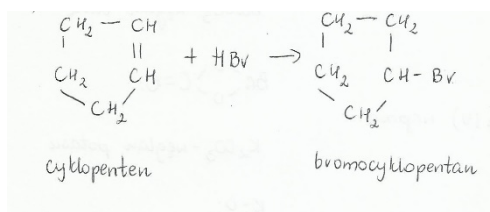 CH₂ — CH CH₂ — CH₂
| || | |
CH₂ CH + HBr → CH₂ CH - Br
CH₂ CH₂
cyklopenten bromocyklopentan